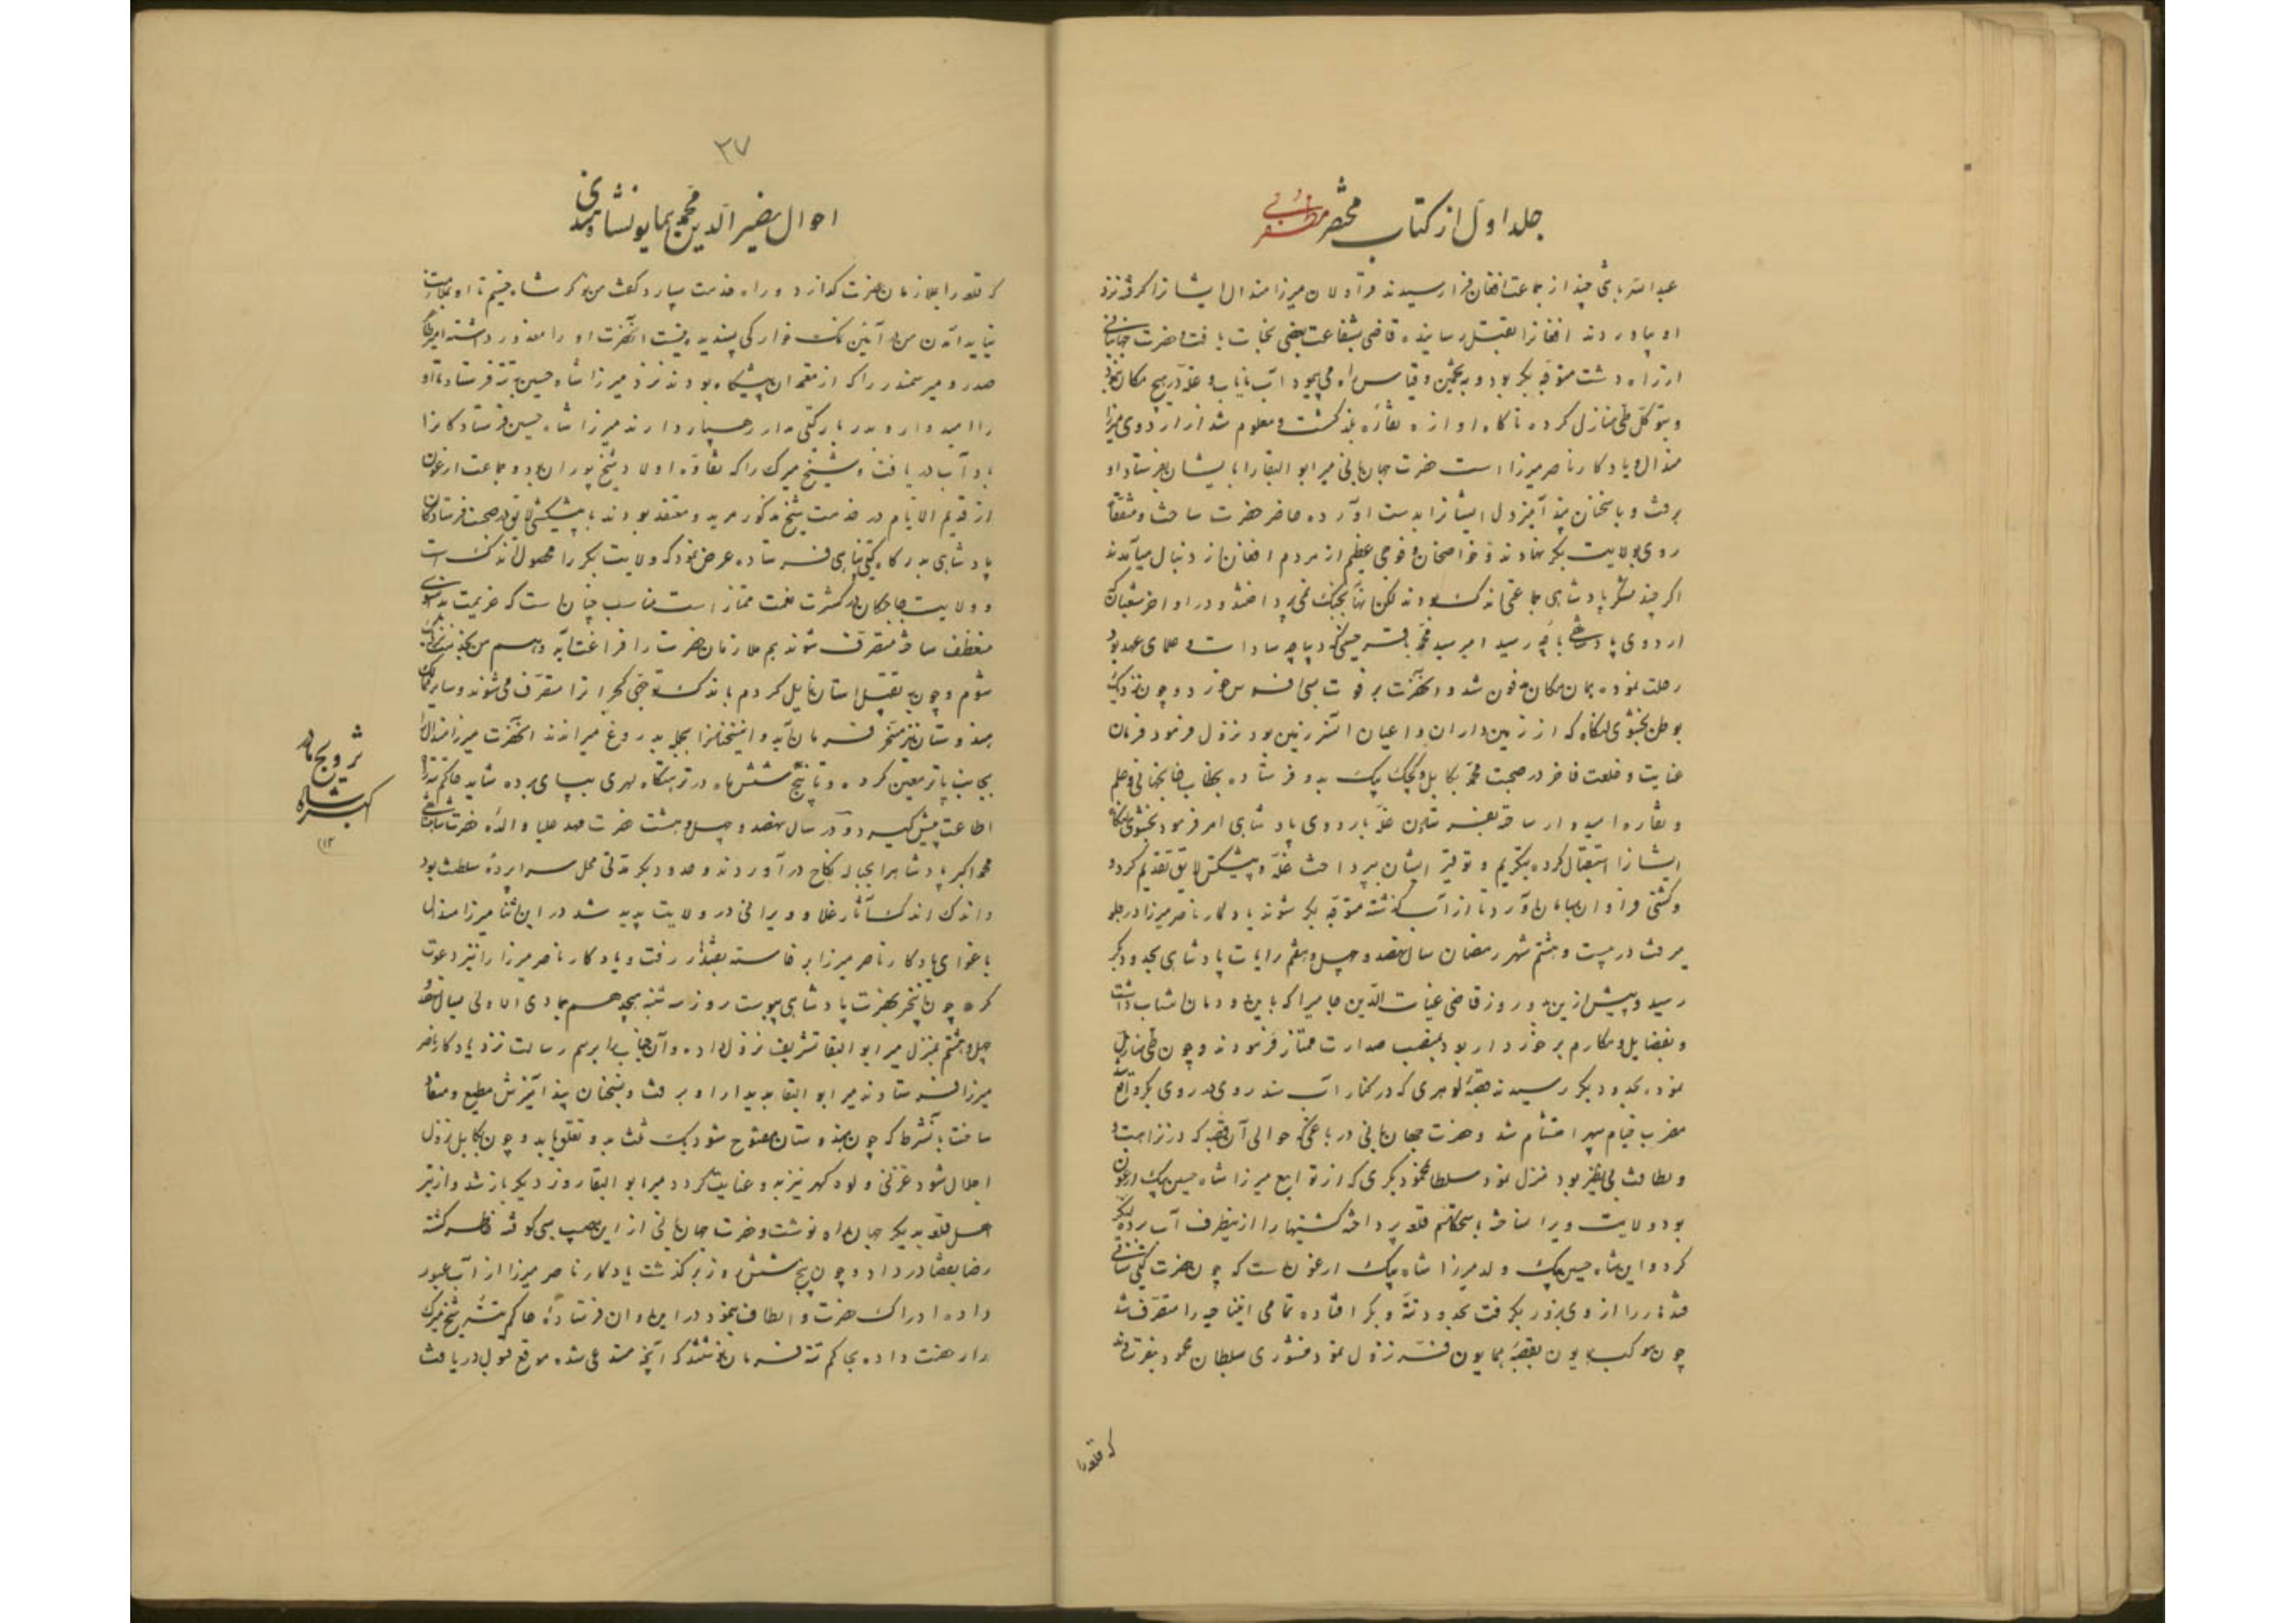 جلد اول از کتاب مختصر مظفری
عبدالله با تنی چند از جماعت افغان فرا رسیدند قراولان میرزا هندال ایشانرا گرفته نزد
او بیاوردند افغانرا بقتل رسانیده قاضی بشفاعت بعضی نجات یافت و حضرت جهانبانی
از راه دشت متوجه بکر بود و به تخمین و قیاس راه می پیمود آب نایاب و غله در هیچ مکان نبود
و بتوکل طی منازل کرده ناگاه آوازه نقاره بلند گشت و معلوم شد از اردوی میرزا
هندال و یادگار ناصر میرزا است حضرت جهانبانی میر ابوالبقا را با ایشان بفرستاد او
برفت و با سخنان پند آمیز دل ایشانرا بدست آورده حاضر حضرت ساخت و متفقا
روی بولایت بکر نهادند و خواصخان و فوجی عظیم از مردم افغان از دنبال میآمدند
اگر چند لشکر پادشاهی جماعتی اندک بودند لکن آنها بجنگ نمی پرداختند و در اواخر شعبان که
اردوی پادشاهی باچه رسید امیر سید محمد باقر حسینی که دیباچه سادات و علمای عهد بود
رحلت نموده بهمان مکان مدفون شد و آنحضرت بر فوت بسی افسوس خورد و چون نزدیک
بوطن بخشوی لنگاه که از زمین داران و اعیان آنسرزمین بود نزول فرمود فرمان
عنایت و خلعت فاخر در صحبت محمد کابلی و کچک بیک بدو فرستاده بخطاب خانجهانی و علم
و نقاره امیدوار ساخته بفرستادن غله باردوی پادشاهی امر فرمود بخشوی لنگاه
ایشانرا استقبال کرده بتکریم و توقیر ایشان بپرداخت غله و پیشکش لایق تقدیم کرد و
و کشتی فراوان بسامان آورد تا از آب گذشته متوجه بکر شوند یادگار ناصر میرزا در جلو
میرفت در بیست و هشتم شهر رمضان سال نهصد و چهل و هفتم رایات پادشاهی بحدود بکر
رسید و پیش از این دو روز قاضی غیاث الدین جامی را که باین دودمان انتساب داشت
و بفضایل و مکارم برخوردار بود بمنصب صدارت ممتاز فرمودند و چون طی منازل
نموده بحدود بکر رسیدند قصبه لوهری که در کنار آب سند روی در روی بکر واقع
مضرب خیام سپهر احتشام شد و حضرت جهانبانی در باغی که حوالی آن قصبه که در نزاهت و
و لطافت بی نظیر بود منزل نمود سلطان محمود بکری که از توابع میرزا شاه حسین بیک ارغون
بود ولایت ویران ساخته باستحکام قلعه پرداخته کشتیها را از اینطرف آب برده لنگر
کرد و این شاه حسین بیک ولد میرزا شاه بیک ارغون است که چون حضرت گیتی ستانی
قندهار را از وی بزور بگرفت بحدود تته و بکر افتاده تمامی آنناحیه را متصرف شد
چون موکب همایون بقصبه همایون فر نزول نمود منشوری سلطان محمود بفرستادند
که قلعه را
۳۷
احوال نصیر الدین محمد همایونشاه هندی
که قلعه را بملازمان حضرت گذارد و راه خدمت سپارد گفت من نوکر شاه حسینم تا او بملازمت
نیاید آمدن من در آئین نمک خوارگی پسندیده نیست آنحضرت او را معذور داشته امیر طاهر
صدر و میر سمندر را که از معتمدان پیشگاه بودند نزد میرزا شاه حسین به تته فرستاد تا او
را امیدوار و بدربار گیتی مدار رهسپار دارند میرزا شاه حسین فرستادگانرا
باداب دریافت و شیخ میرک را که نقاوه اولاد شیخ پوران بود و جماعت ارغون
از قدیم الایام در خدمت شیخ مذکور مرید و معتقد بودند با پیشکشی لایق در صحبت فرستادگان
پادشاهی بدرگاه گیتی پناهی فرستاده عرض نمود که ولایت بکر را محصول اندک است
و ولایت حاجکان در کثرت نعمت ممتاز است مناسب چنان است که عزیمت بدانسوی
منعطف ساخته متصرف شوند هم ملازمان حضرت را فراغت آید و هم من بخدمت نزدیک
شوم و چون به تقبیل آستان نایل کردم باندک توجهی گجراترا متصرف می شوند و سایر ممالک
هندوستان نیز مسخر فرمان آید و این سخنانرا بجمله بدروغ میراندند آنحضرت میرزا هندال را
بجانب پاتر معین کرده و تا پنج شش ماه در نزهتگاه لهری بپای برده شاید حاکم تته راه
اطاعت پیش گیرد و در سال نهصد و چهل و هشت حضرت مهد علیا والده حضرت شاهنشاهی
محمد اکبر پادشاه را بحباله نکاح در آوردند و حدود بکر مدتی محل سراپرده سلطنت بود
و اندک اندک آثار غلا و ویرانی در ولایت پدید شد در این اثنا میرزا هندال
باغوای یادگار ناصر میرزا برخاسته بقندهار رفت و یادگار ناصر میرزا را نیز دعوت
کرد چون اینخبر بحضرت پادشاهی پیوست روز سه شنبه هیجدهم جمادی الاولی سال نهصد و
چهل و هشتم بمنزل میر ابوالبقا تشریف نزول داده و آنجناب را برسم رسالت نزد یادگار ناصر
میرزا فرستادند میر ابوالبقا بدیدار او برفت و بسخنان پند آمیزش مطیع و منقاد
ساخت بآنشرط که چون هندوستان مفتوح شود یک ثلث بدو تعلق یابد و چون کابل نزول
اجلال شود غزنی و لوه کهر نیز بدو عنایت گردد میر ابوالبقا روز دیگر باز شد و از تیر
اهل قلعه بدیگر جهان راه نوشت و حضرت جهانبانی از این مصیبت بسی کوفته خاطر گشته
رضا بقضا در داد و چون پنج شش روز بر گذشت یادگار ناصر میرزا از آب عبور
داده ادراک حضرت و الطاف بنمود در این اوان فرستاده حاکم تته شیخ میرک
را رخصت داده بحاکم تته فرمان نوشتند که آنچه مستدعی شده موقع قبول دریافت
تزویج مادر
اکبر شاه
(۱۳